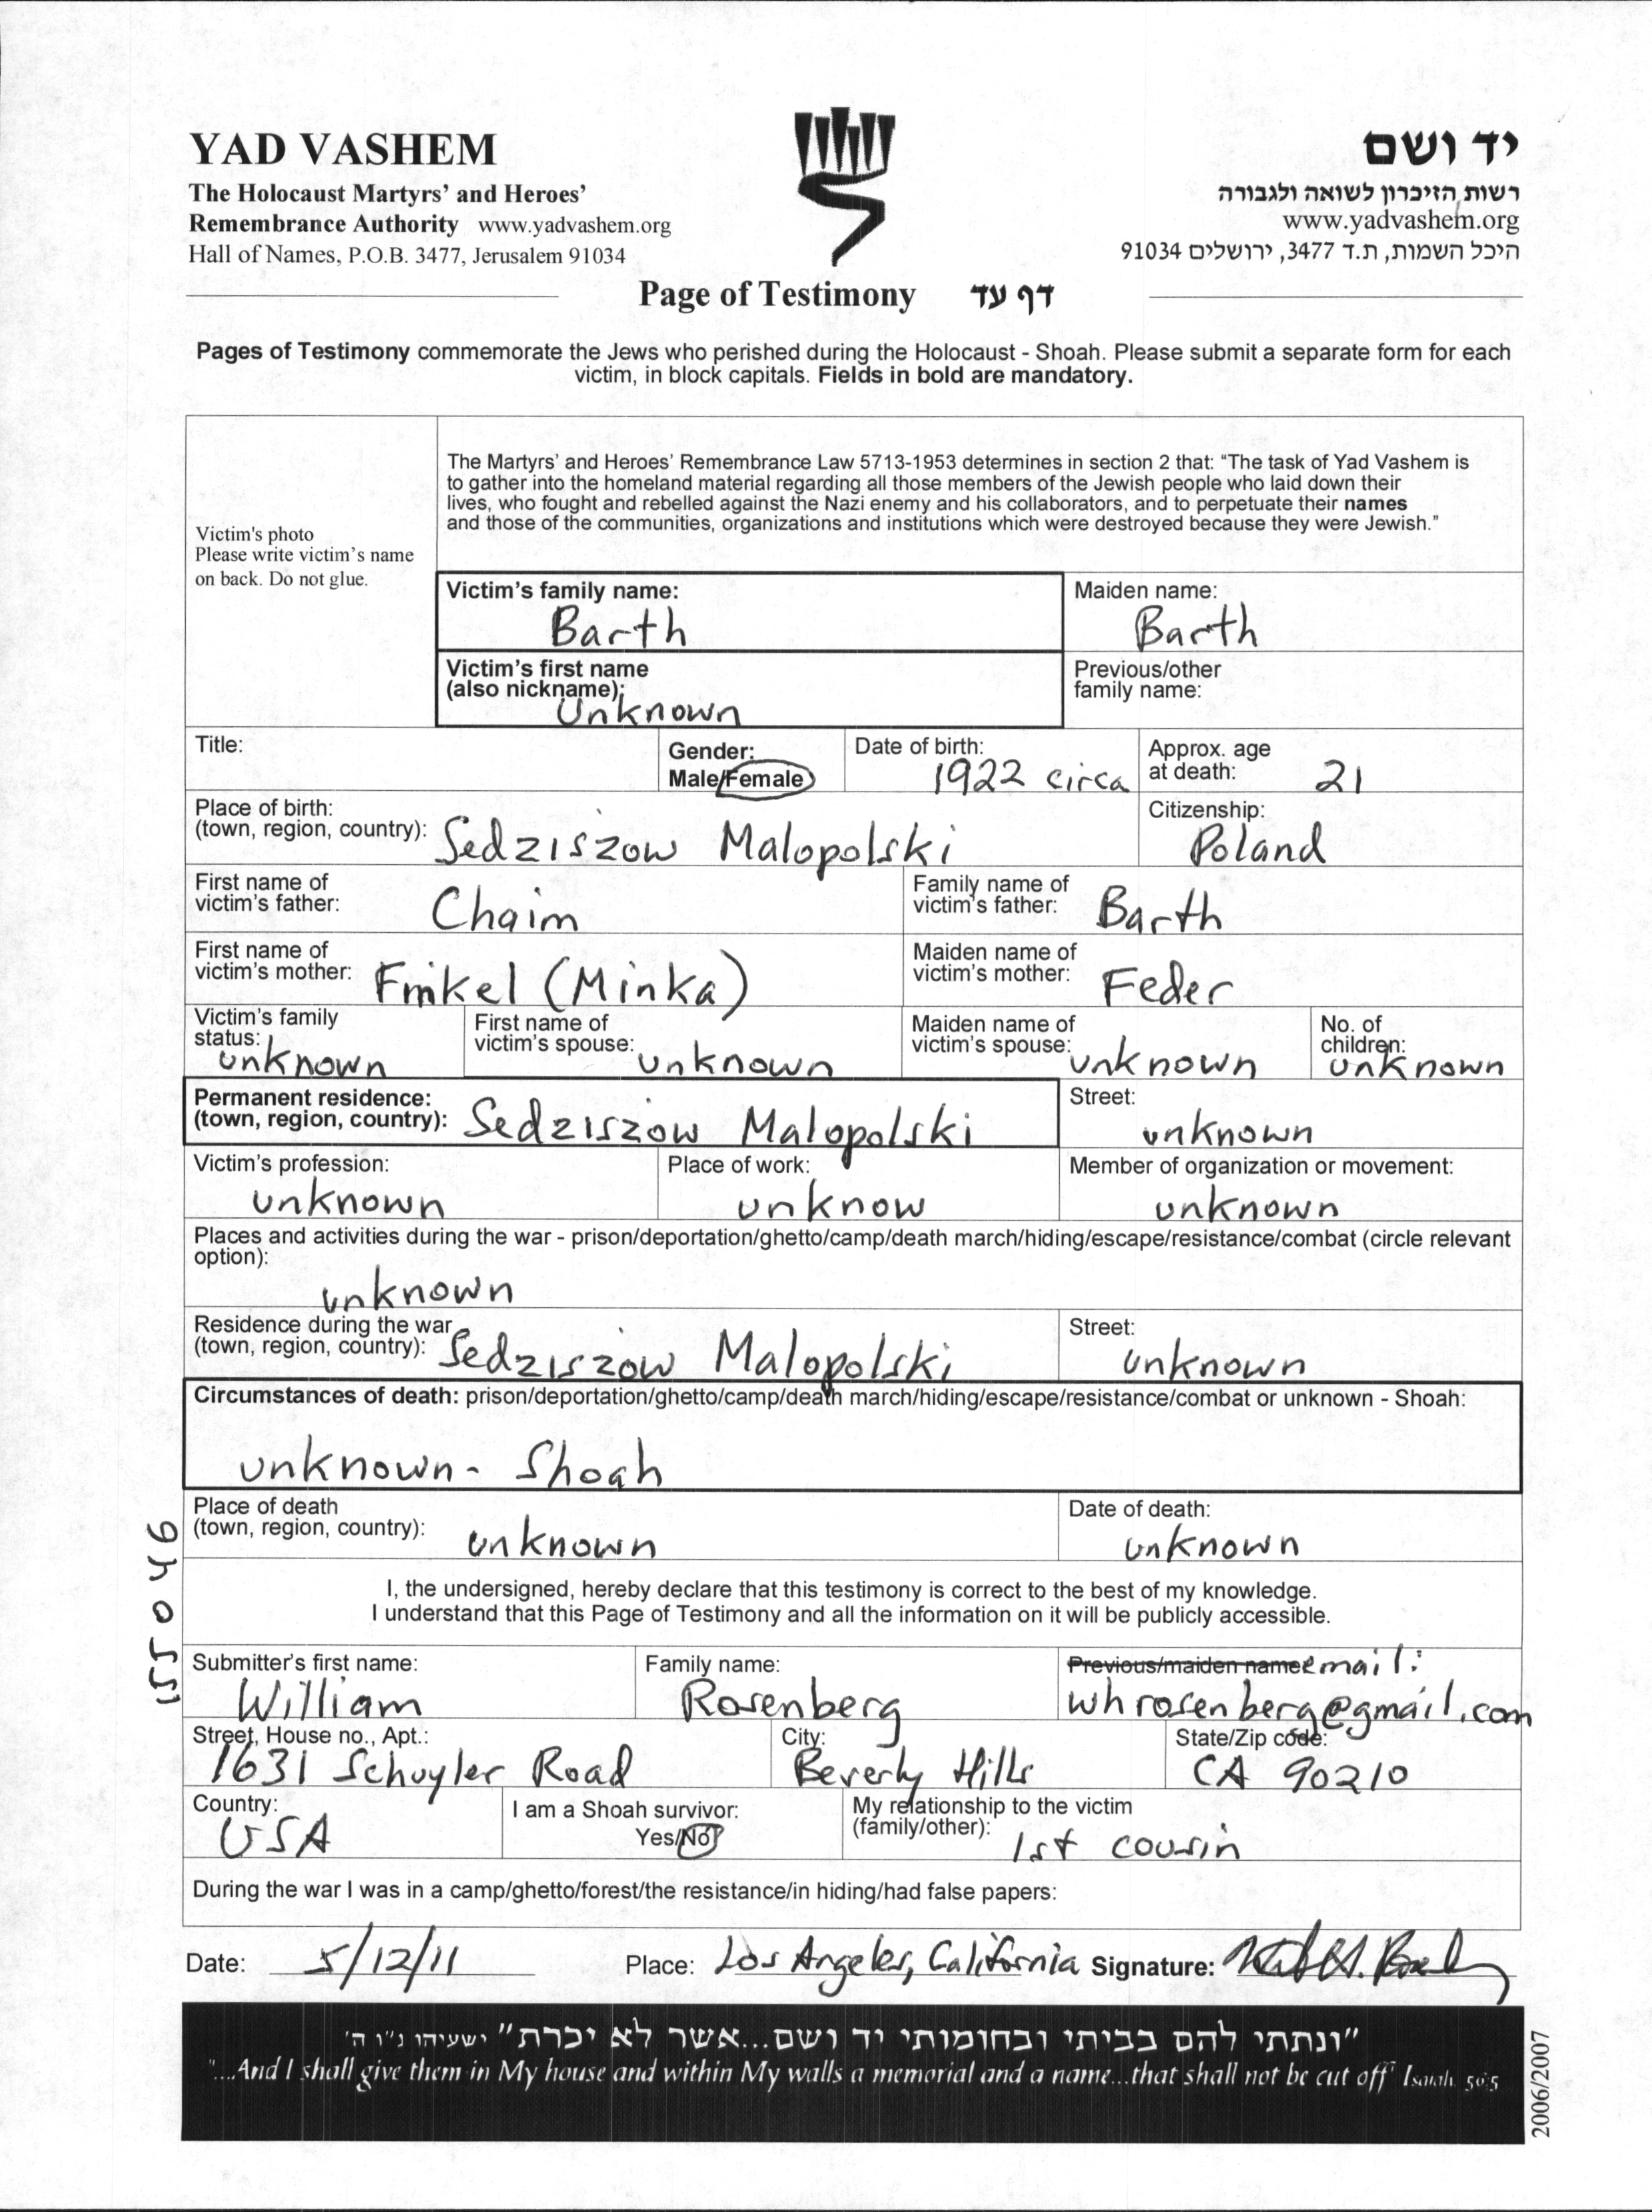 YAD VASHEM
The Holocaust Martyrs' and Heroes'
Remembrance Authority www.yadvashem.org
Hall of Names, P.O.B. 3477, Jerusalem 91034
יד ושם
רשות הזיכרון לשואה ולגבורה
www.yadvashem.org
היכל השמות, ת.ד 3477, ירושלים 91034
Page of Testimony דף עד
Pages of Testimony commemorate the Jews who perished during the Holocaust - Shoah. Please submit a separate form for each
victim, in block capitals. Fields in bold are mandatory.
Victim's photo
Please write victim's name
on back. Do not glue.
The Martyrs' and Heroes' Remembrance Law 5713-1953 determines in section 2 that: "The task of Yad Vashem is
to gather into the homeland material regarding all those members of the Jewish people who laid down their
lives, who fought and rebelled against the Nazi enemy and his collaborators, and to perpetuate their names
and those of the communities, organizations and institutions which were destroyed because they were Jewish."
Victim's family name:
Barth
Maiden name:
Barth
Victim's first name
(also nickname):
Unknown
Previous/other
family name:
Title:
Gender:
Male/Female
Date of birth:
1922 circa
Approx. age
at death: 21
Place of birth:
(town, region, country): Sedziszow Malopolski
Citizenship:
Poland
First name of
victim's father: Chaim
Family name of
victim's father: Barth
First name of
victim's mother: Finkel (Minka)
Maiden name of
victim's mother: Feder
Victim's family
status: unknown
First name of
victim's spouse: unknown
Maiden name of
victim's spouse: unknown
No. of
children: unknown
Permanent residence:
(town, region, country): Sedziszow Malopolski
Street:
unknown
Victim's profession:
unknown
Place of work:
unknow
Member of organization or movement:
unknown
Places and activities during the war - prison/deportation/ghetto/camp/death march/hiding/escape/resistance/combat (circle relevant
option):
unknown
Residence during the war
(town, region, country): Sedziszow Malopolski
Street:
unknown
Circumstances of death: prison/deportation/ghetto/camp/death march/hiding/escape/resistance/combat or unknown - Shoah:
unknown - Shoah
Place of death
(town, region, country): unknown
Date of death:
unknown
I, the undersigned, hereby declare that this testimony is correct to the best of my knowledge.
I understand that this Page of Testimony and all the information on it will be publicly accessible.
Submitter's first name:
William
Family name:
Rosenberg
Previous/maiden name: email:
whrosenberg@gmail.com
Street, House no., Apt.:
1631 Schuyler Road
City:
Beverly Hills
State/Zip code:
CA 90210
Country:
USA
I am a Shoah survivor:
Yes/No
My relationship to the victim
(family/other): 1st cousin
During the war I was in a camp/ghetto/forest/the resistance/in hiding/had false papers:
Date: 5/12/11 Place: Los Angeles, California Signature:
"ונתתי להם בביתי ובחומותי יד ושם...אשר לא יכרת" ישעיהו נ"ו ה'
"...And I shall give them in My house and within My walls a memorial and a name...that shall not be cut off" Isaiah 56:5
2006/2007